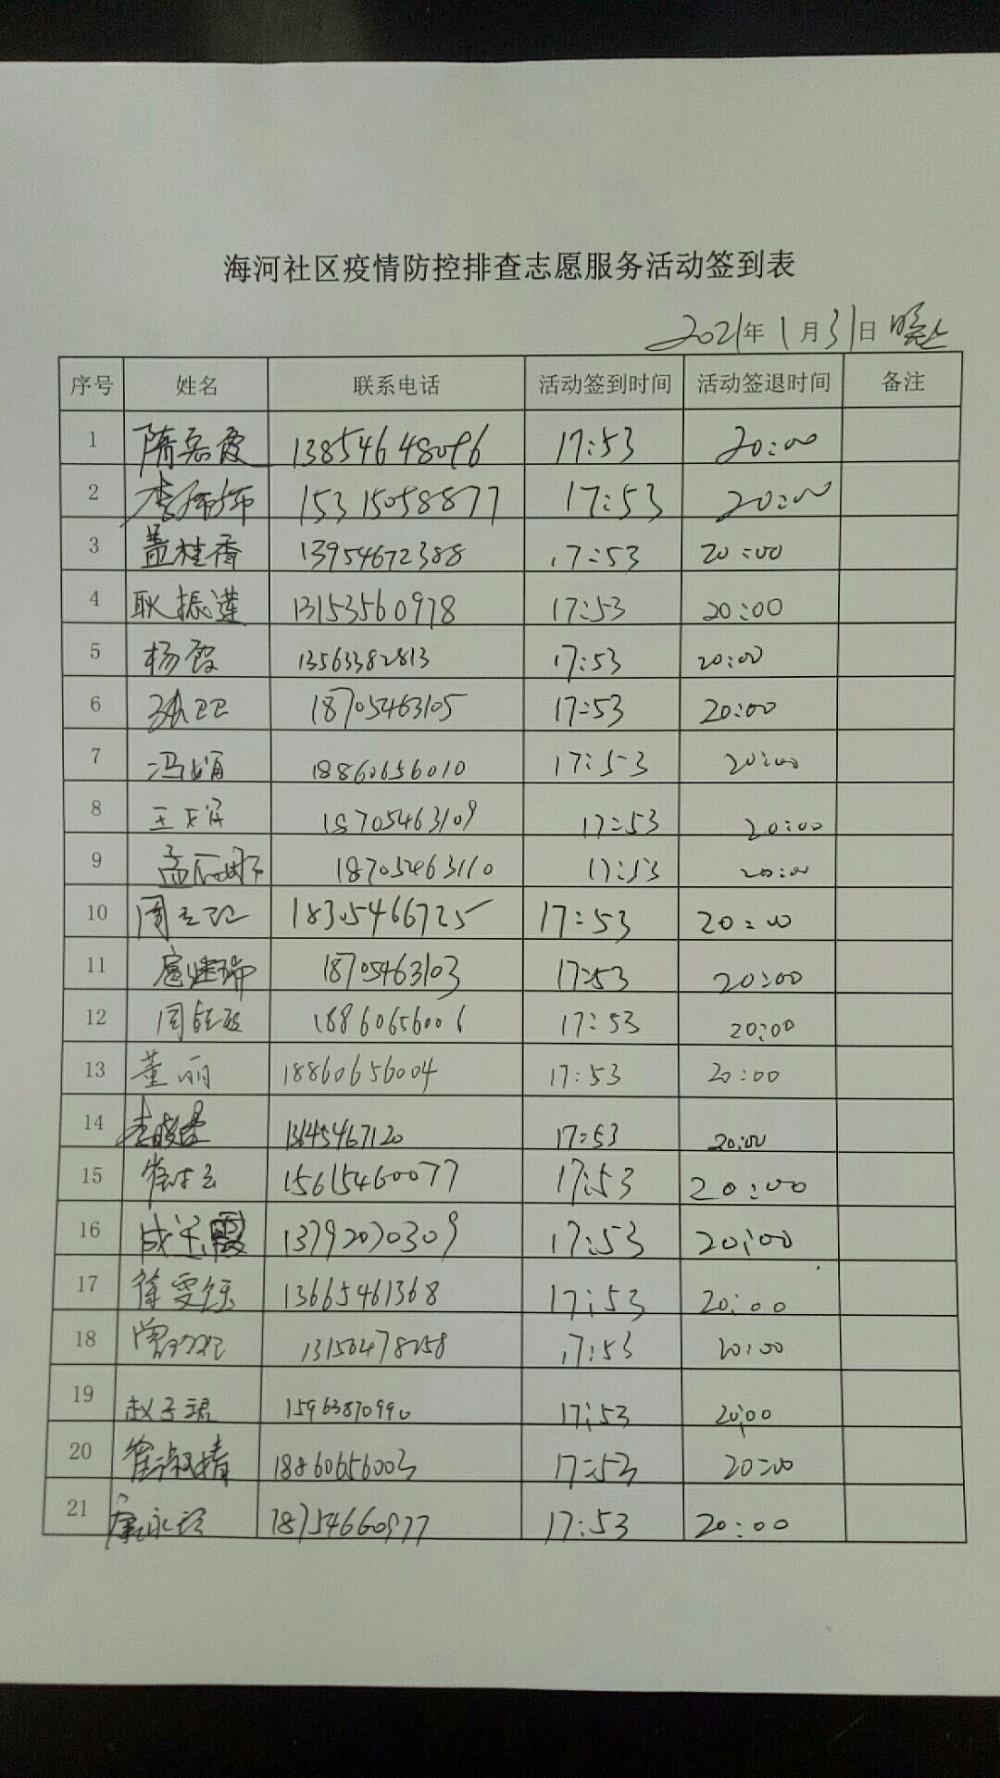 海河社区疫情防控排查志愿服务活动签到表
2021年1月31日 晚上
序号 姓名 联系电话 活动签到时间 活动签退时间 备注
1 隋磊霞 13854648096 17:53 20:00
2 李师师 15315058877 17:53 20:00
3 盖桂香 13954672388 17:53 20:00
4 耿振莲 13153560978 17:53 20:00
5 杨霞 13563382813 17:53 20:00
6 18705463105 17:53 20:00
7 冯娟 18860656010 17:53 20:00
8 18705463109 17:53 20:00
9 18705463110 17:53 20:00
10 17:53 20:00
11 18705463103 17:53 20:00
12 18860656006 17:53 20:00
13 董丽 18860656004 17:53 20:00
14 17:53 20:00
15 15615460077 17:53 20:00
16 13792070309 17:53 20:00
17 徐雯钰 13665461368 17:53 20:00
18 17:53 20:00
19 赵子珺 15963870990 17:53 20:00
20 崔淑婧 18860656003 17:53 20:00
21 18754660977 17:53 20:00